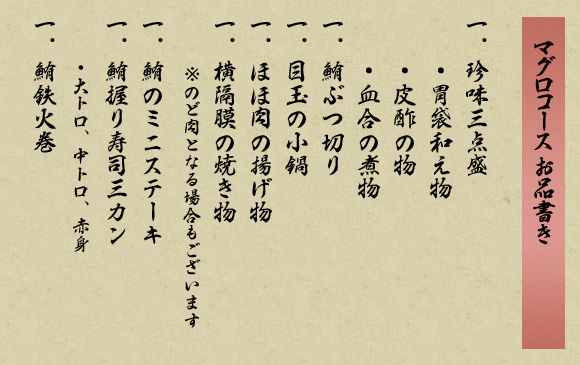 マグロコース お品書き
一．珍味三点盛
・胃袋和え物
・皮酢の物
・血合の煮物
一．鮪ぶつ切り
一．目玉の小鍋
一．ほほ肉の揚げ物
一．横隔膜の焼き物
※のど肉となる場合もございます
一．鮪のミニステーキ
一．鮪握り寿司三カン
・大トロ、中トロ、赤身
一．鮪鉄火巻